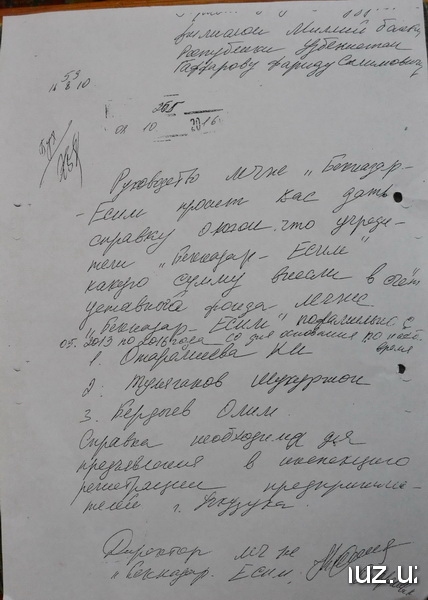 филиалом Миллий банк
Республики Узбекистан
Гаффарову Фариду Салимовичу
53
16 8 10
265
08 10 2016
Руководство мчже „Бекназар-
- Есим просит Вас дать
справку о том что учреди-
тели „Бекназар- Есим"
какую сумму внесли в счёт
уставного фонда мчже
„Бекназар- Есим" пофамильно с
05. 2013 по 2016 года со дня основания по наст. время
1. Отарашева К И
2. Шукуржон
3. Бердыев Олим.
Справка необходима для
предъявления в инспекцию
регистрации предпринима-
телей г. Нукуза.
Директор мчже
„Бекназар. Есим,
IUZ.U